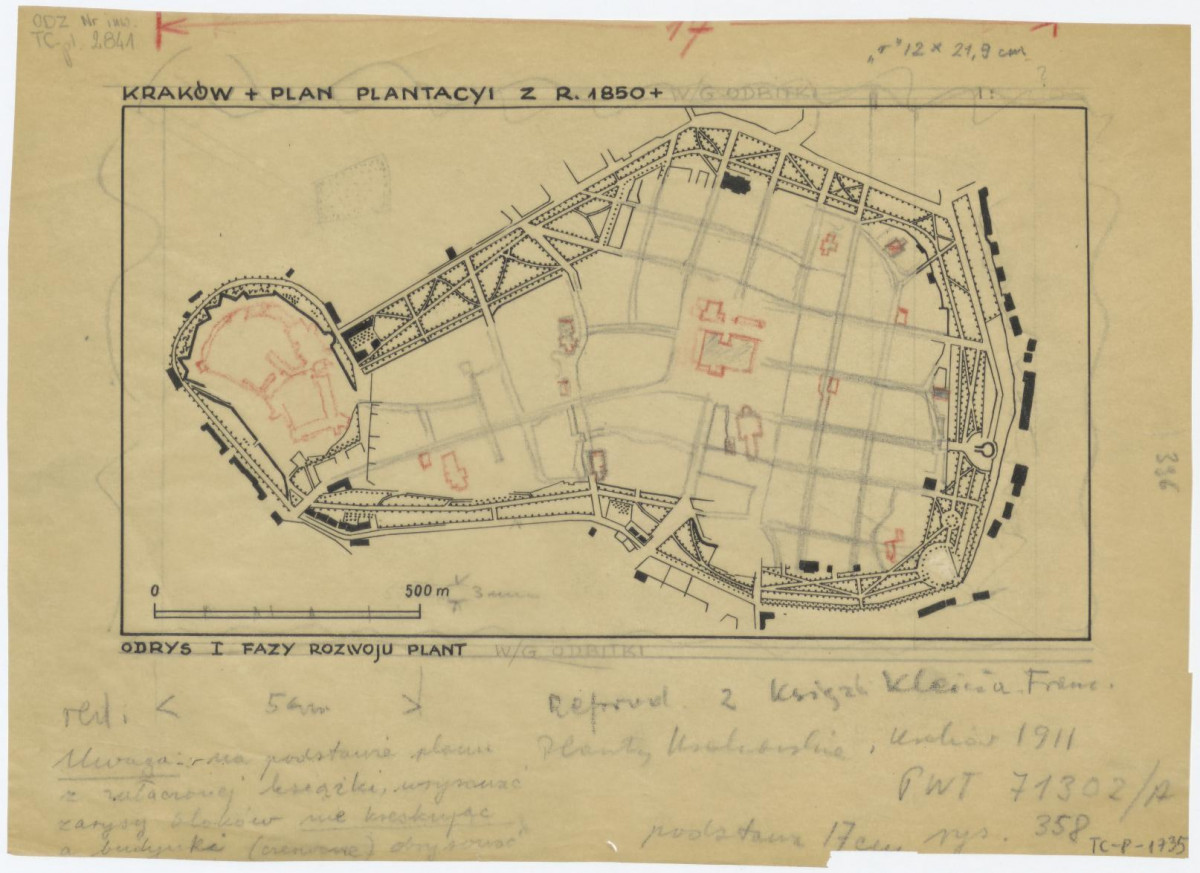 ODZ Nr inw.
TC-pl. 2841
17
"r" 12 × 21,9 cm
?
KRAKÓW + PLAN PLANTACYI Z R. 1850 + W/G ODBITKI
1:
0 500 m
3 mm
ODRYS I FAZY ROZWOJU PLANT W/G ODBITKI
336
red: < 5 cm >
Reprod. z Książk Kleina Franc.
Planty Krakowskie, Kraków 1911
Uwaga: na podstawie planu
z załączonej książki, wrysować
zarysy bloków nie kreskując
a budynki (czerwone) obrysować
PWT 71302/A
podstawa 17 cm rys. 358
TC-P-1735